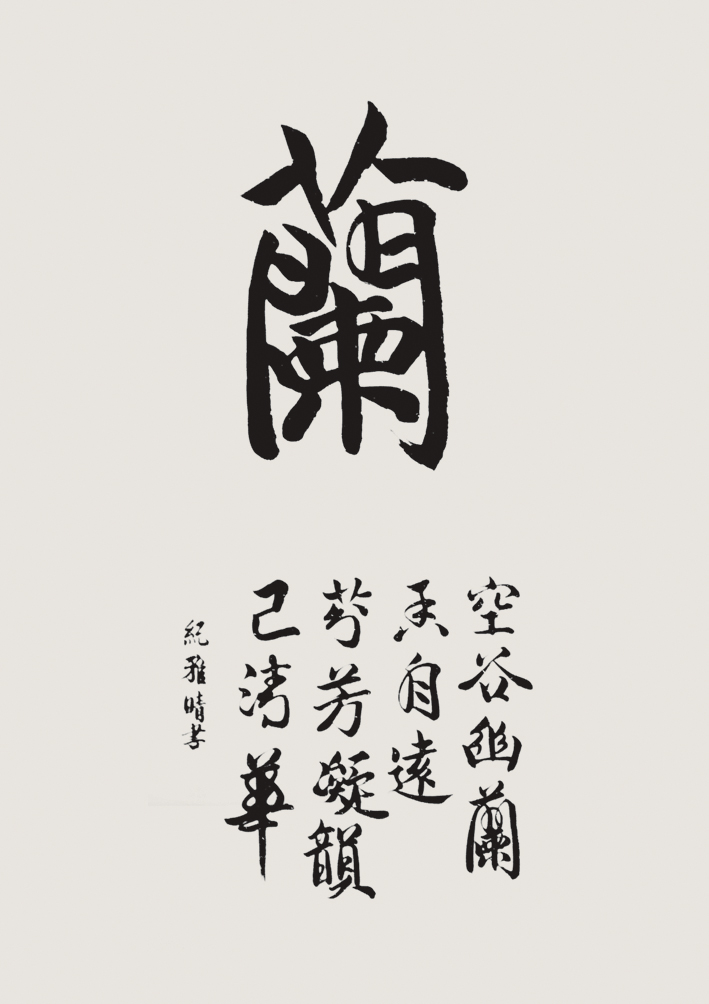 蘭
空谷幽蘭
香自遠
芬芳凝韻
己清華
紀雅晴書